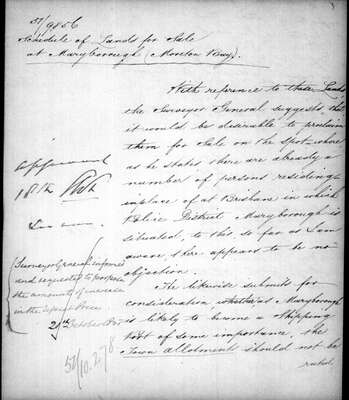 51/9856
Schedule of Lands for Sale
at Maryborough (Moreton Bay).
With reference to these Lands
the Surveyor General suggests that
it would be desirable to proclaim
them for Sale on the spot where
as he states there are already a
number of persons residing
in place of at Brisbane in which
Police District Maryborough is
situated, to this so far as I am
aware, there appears to be no
objection.
He likewise submits for
consideration whether as Maryborough
is likely to become a Shipping
Port of some importance, the
Town allotments should not be
raised
Approved
18th
Surveyor General informed
and requested to propose
the amount of increase
in the upset Price
21st October
51/10.278